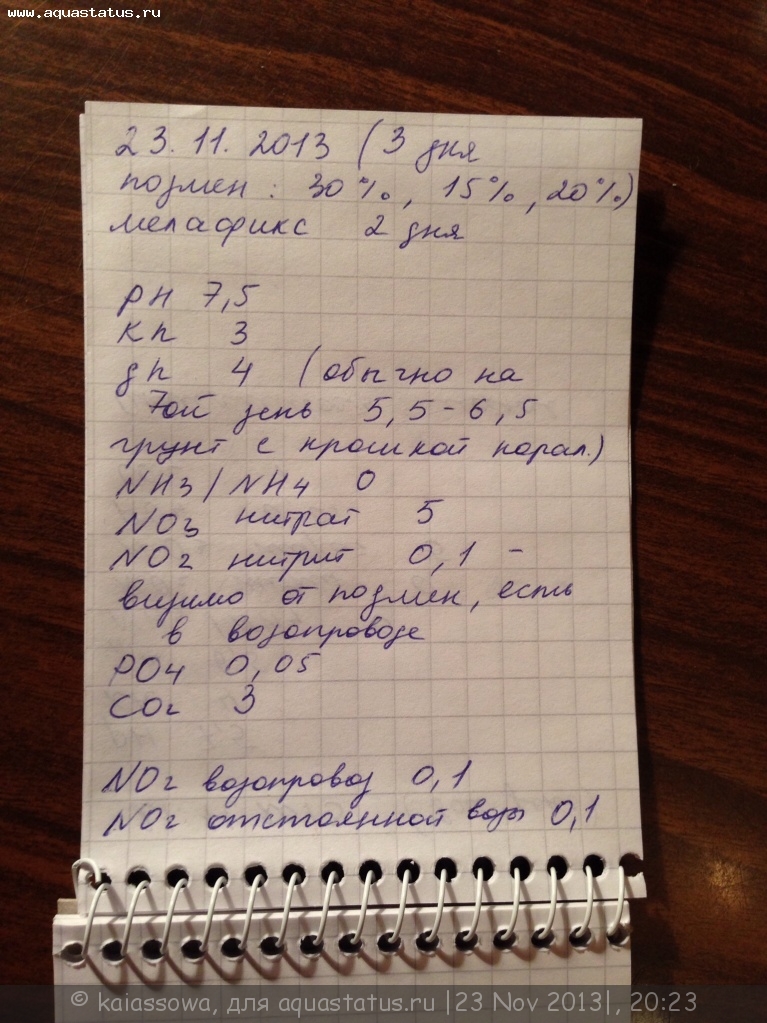 www.aquastatus.ru
23.11.2013 (3 дня
подмен: 30%, 15%, 20%)
мелафикс 2 дня
PH 7,5
Kh 3
gh 4 (обычно на
7ой день 5,5-6,5
грунт с крошкой корал.)
NH3/NH4 0
NO3 нитрат 5
NO2 нитрит 0,1 -
видимо от подмен, есть
в водопроводе
PO4 0,05
CO2 3
NO2 водопровод 0,1
NO2 отстоянной воды 0,1
© kaiassowa, для aquastatus.ru |23 Nov 2013|, 20:23